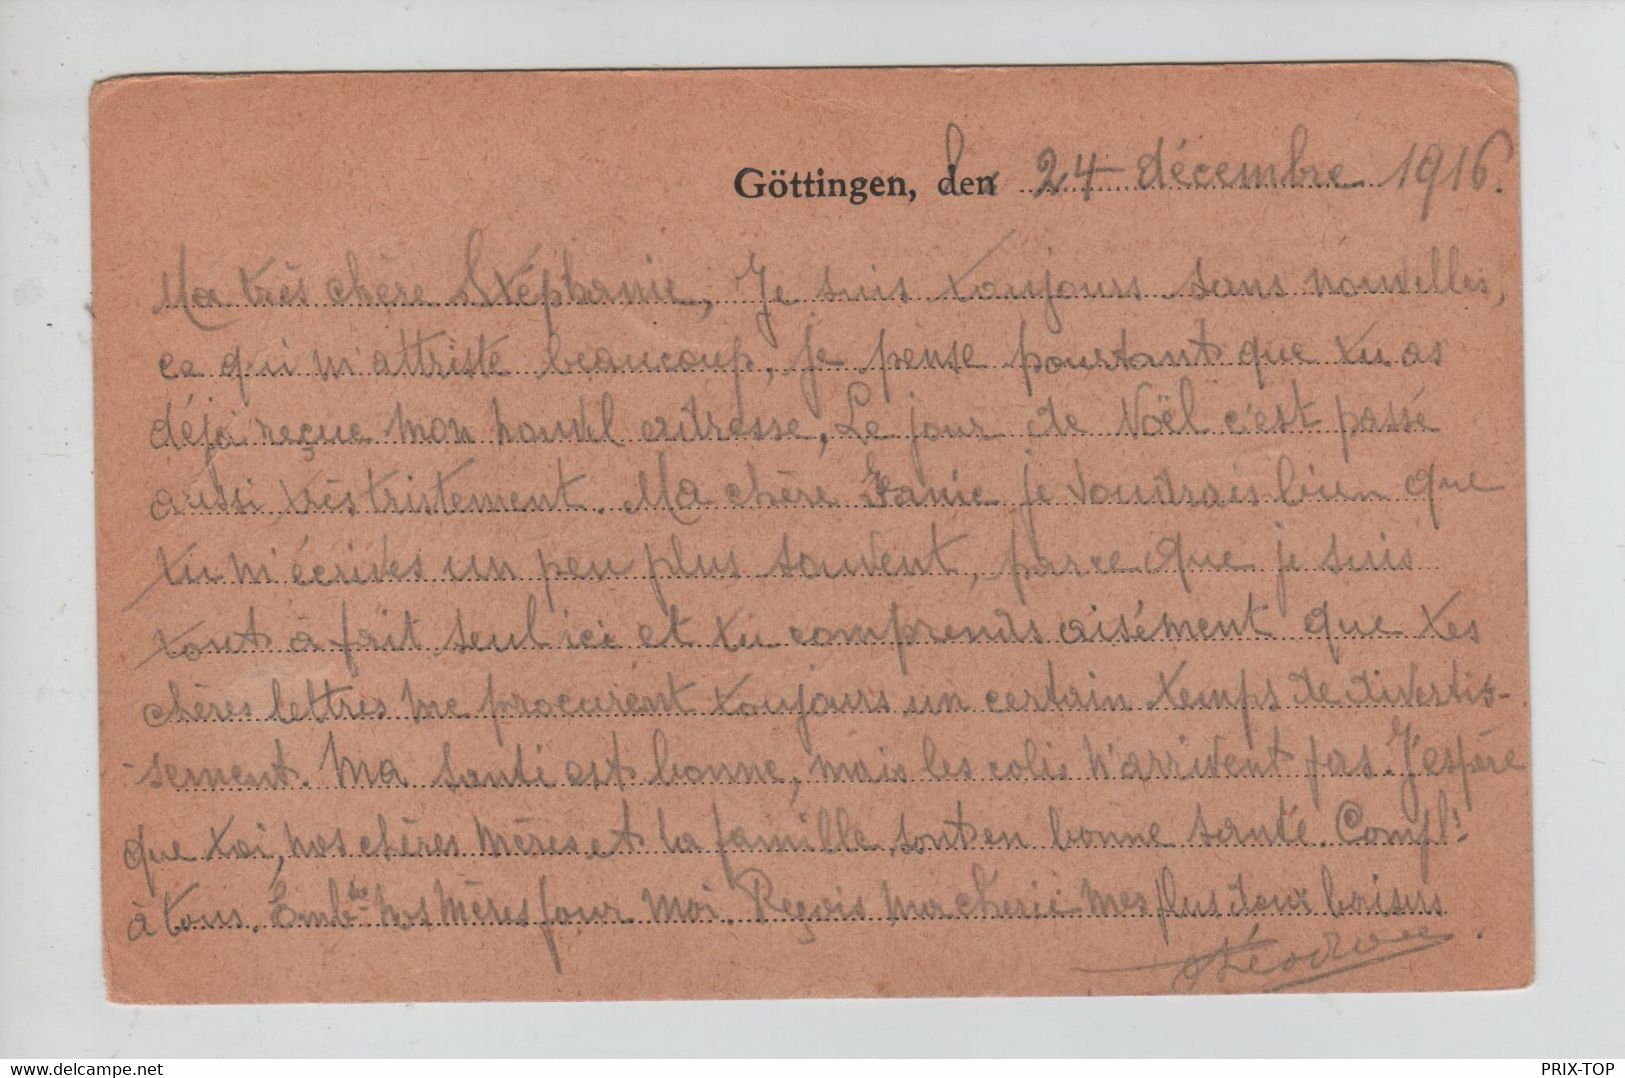 Göttingen, den le 24 décembre 1916.
Ma très chère Stéphanie, Je suis toujours sans nouvelles,
ce qui m'attriste beaucoup, je pense pourtant que tu as
déjà reçue mon nouvel adresse, Le jour de Noël c'est passé
aussi très tristement. Ma chère Fanie je voudrais bien que
tu m'écrives un peu plus souvent, parce que je suis
tout à fait seul ici et tu comprends aisément que tes
chères lettres me procurent toujours un certain temps de divertis-
-sement. Ma santé est bonne, mais les colis n'arrivent pas. J'espère
que toi, nos chères mères et la famille, sont en bonne santé. Compl.ts
à tous. Emb.les nos mères pour moi. Reçois ma cherie mes plus doux baisers
.
PRIX-TOP